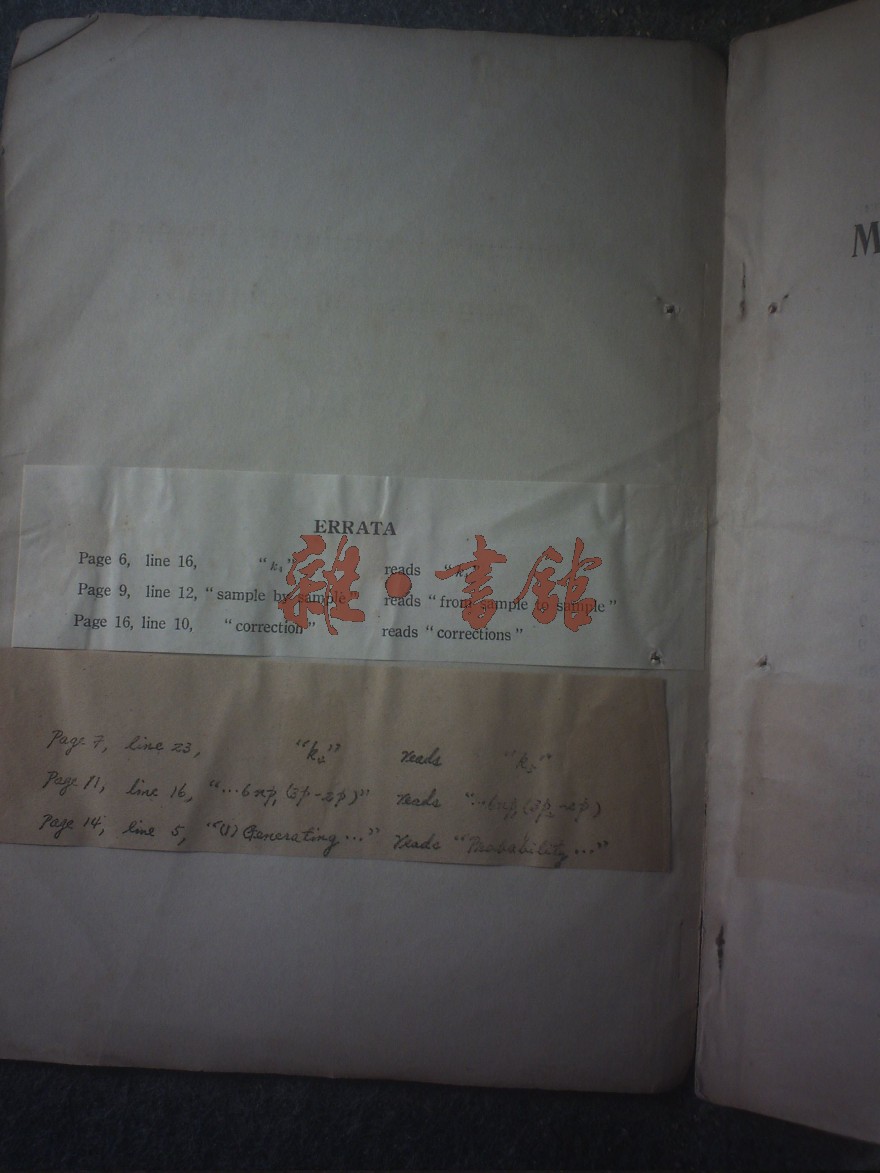 ERRATA
Page 6, line 16, " k₄ " reads " k
Page 9, line 12, " sample by sample reads " from sample to sample "
Page 16, line 10, " correction " reads " corrections "
Page 7, line 23, "k₂" reads "k
Page 11, line 16, "...6np (3p-2p)" reads "...6np
Page 14, line 5, "(1) Generating..." reads "Probability..."
雜·書館
M